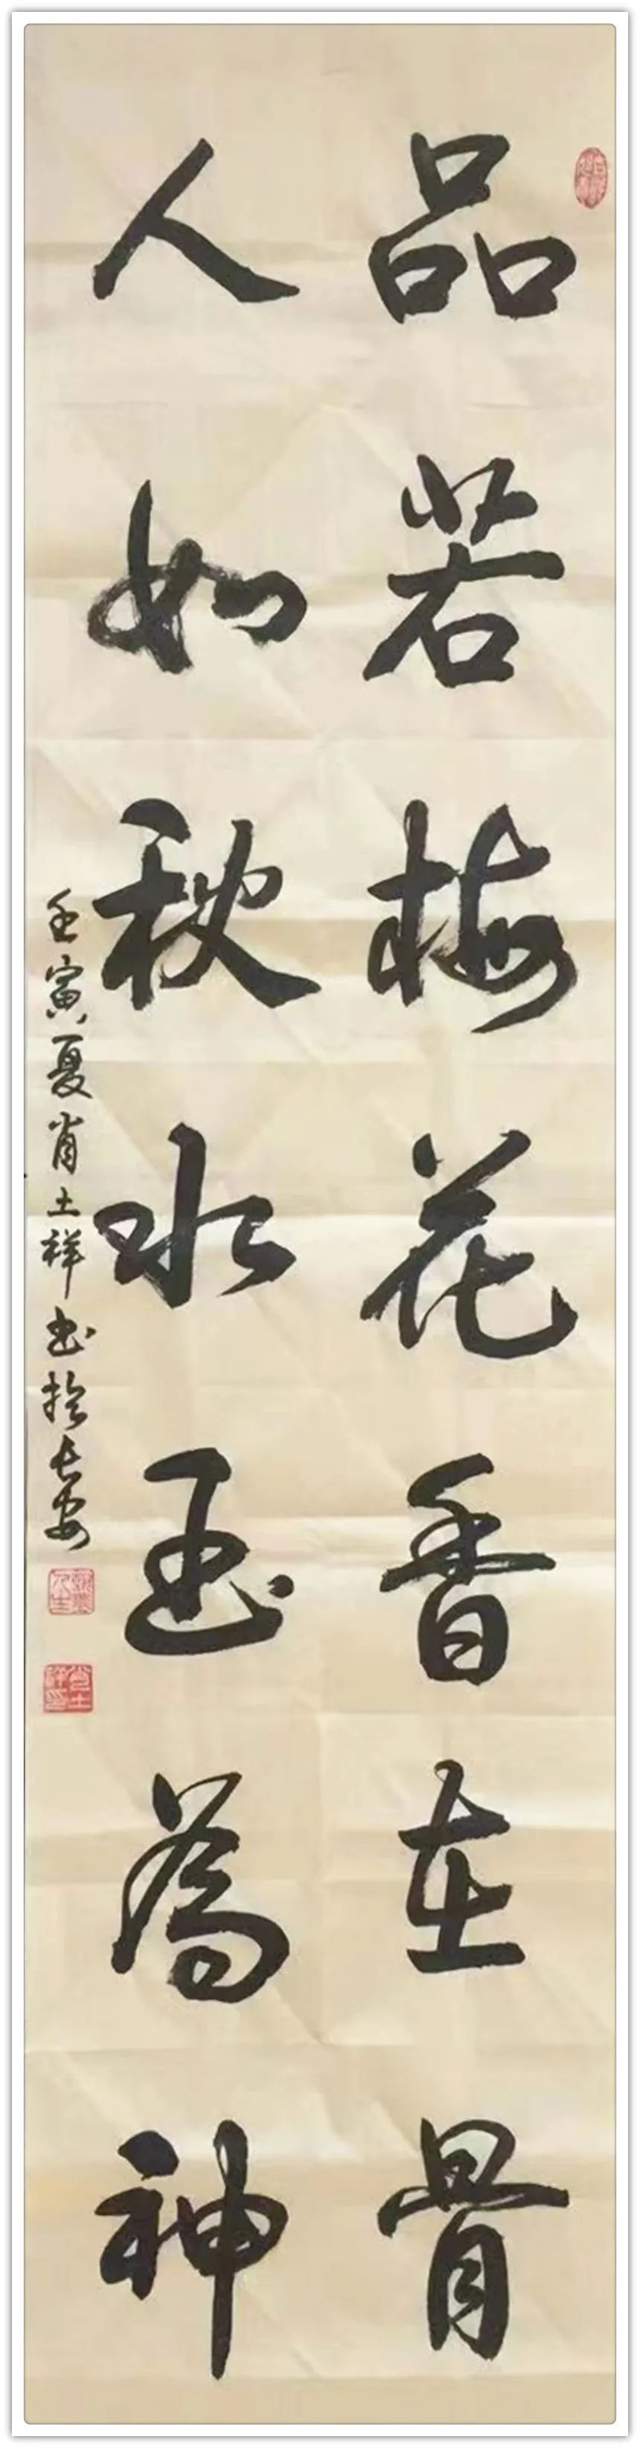 品若梅花香在骨
人如秋水玉为神
壬寅夏肖土祥书於长安